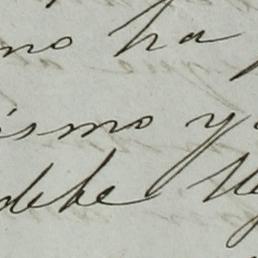 no ha
ismo y
debe